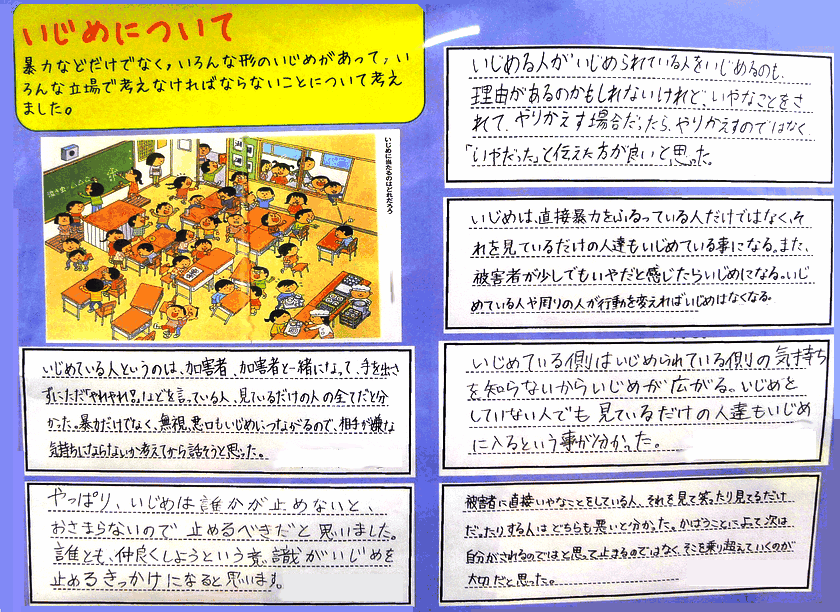 いじめについて
暴力などだけでなく，いろんな形のいじめがあって，い
ろんな立場で考えなければならないことについて考え
ました。
いじめに当たるのはどれだろう
いじめている人というのは、加害者、加害者と一緒になって、手を出さ
ずにただ「やれやれ!!」などを言っている人、見ているだけの人の全てだと分
かった。暴力だけでなく、無視、悪口もいじめにつながるので、相手が嫌な
気持ちにならないか考えてから話そうと思った。
やっぱり、いじめは誰かが止めないと、
おさまらないので止めるべきだと思いました。
誰とも、仲良くしようという意識がいじめを
止めるきっかけになると思います。
いじめる人がいじめられている人をいじめるのも、
理由があるのかもしれないけれど、いやなことをさ
れて、やりかえす場合だったら、やりかえすのではなく、
「いやだった」と伝えた方が良いと思った。
いじめは、直接暴力をふるっている人だけではなく、そ
れを見ているだけの人達もいじめている事になる。また、
被害者が少しでもいやだと感じたらいじめになる。いじ
めている人や周りの人が行動を変えればいじめはなくなる。
いじめている側はいじめられている側の気持ち
を知らないからいじめが広がる。いじめを
していない人でも見ているだけの人達もいじめ
に入るという事が分かった。
被害者に直接いやなことをしている人、それを見て笑ったり見てるだけ
だったりする人はどちらも悪いと分かった。かばうことによって次は
自分がされるのではと思って止まるのではなく、そこを乗り超えていくのが
大切だと思った。